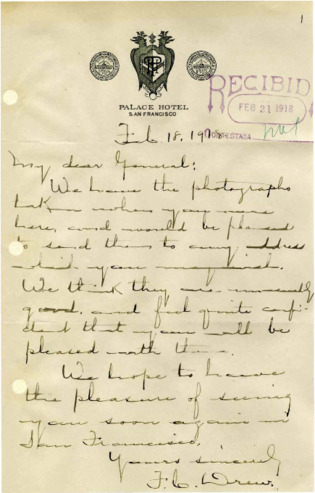 1
PALACE HOTEL
SAN FRANCISCO
RECIBID
FEB 21 1918
CONTESTADA
Feb 18, 1918
My dear General:
We have the photographs
taken when you were
here, and would be pleased
to send them to any address
which you may wish.
We think they are unusually
good, and feel quite confi-
dent that you will be
pleased with them.
We hope to have
the pleasure of seeing
you soon again in
San Francisco.
Yours sincerely
F. C. Drew.